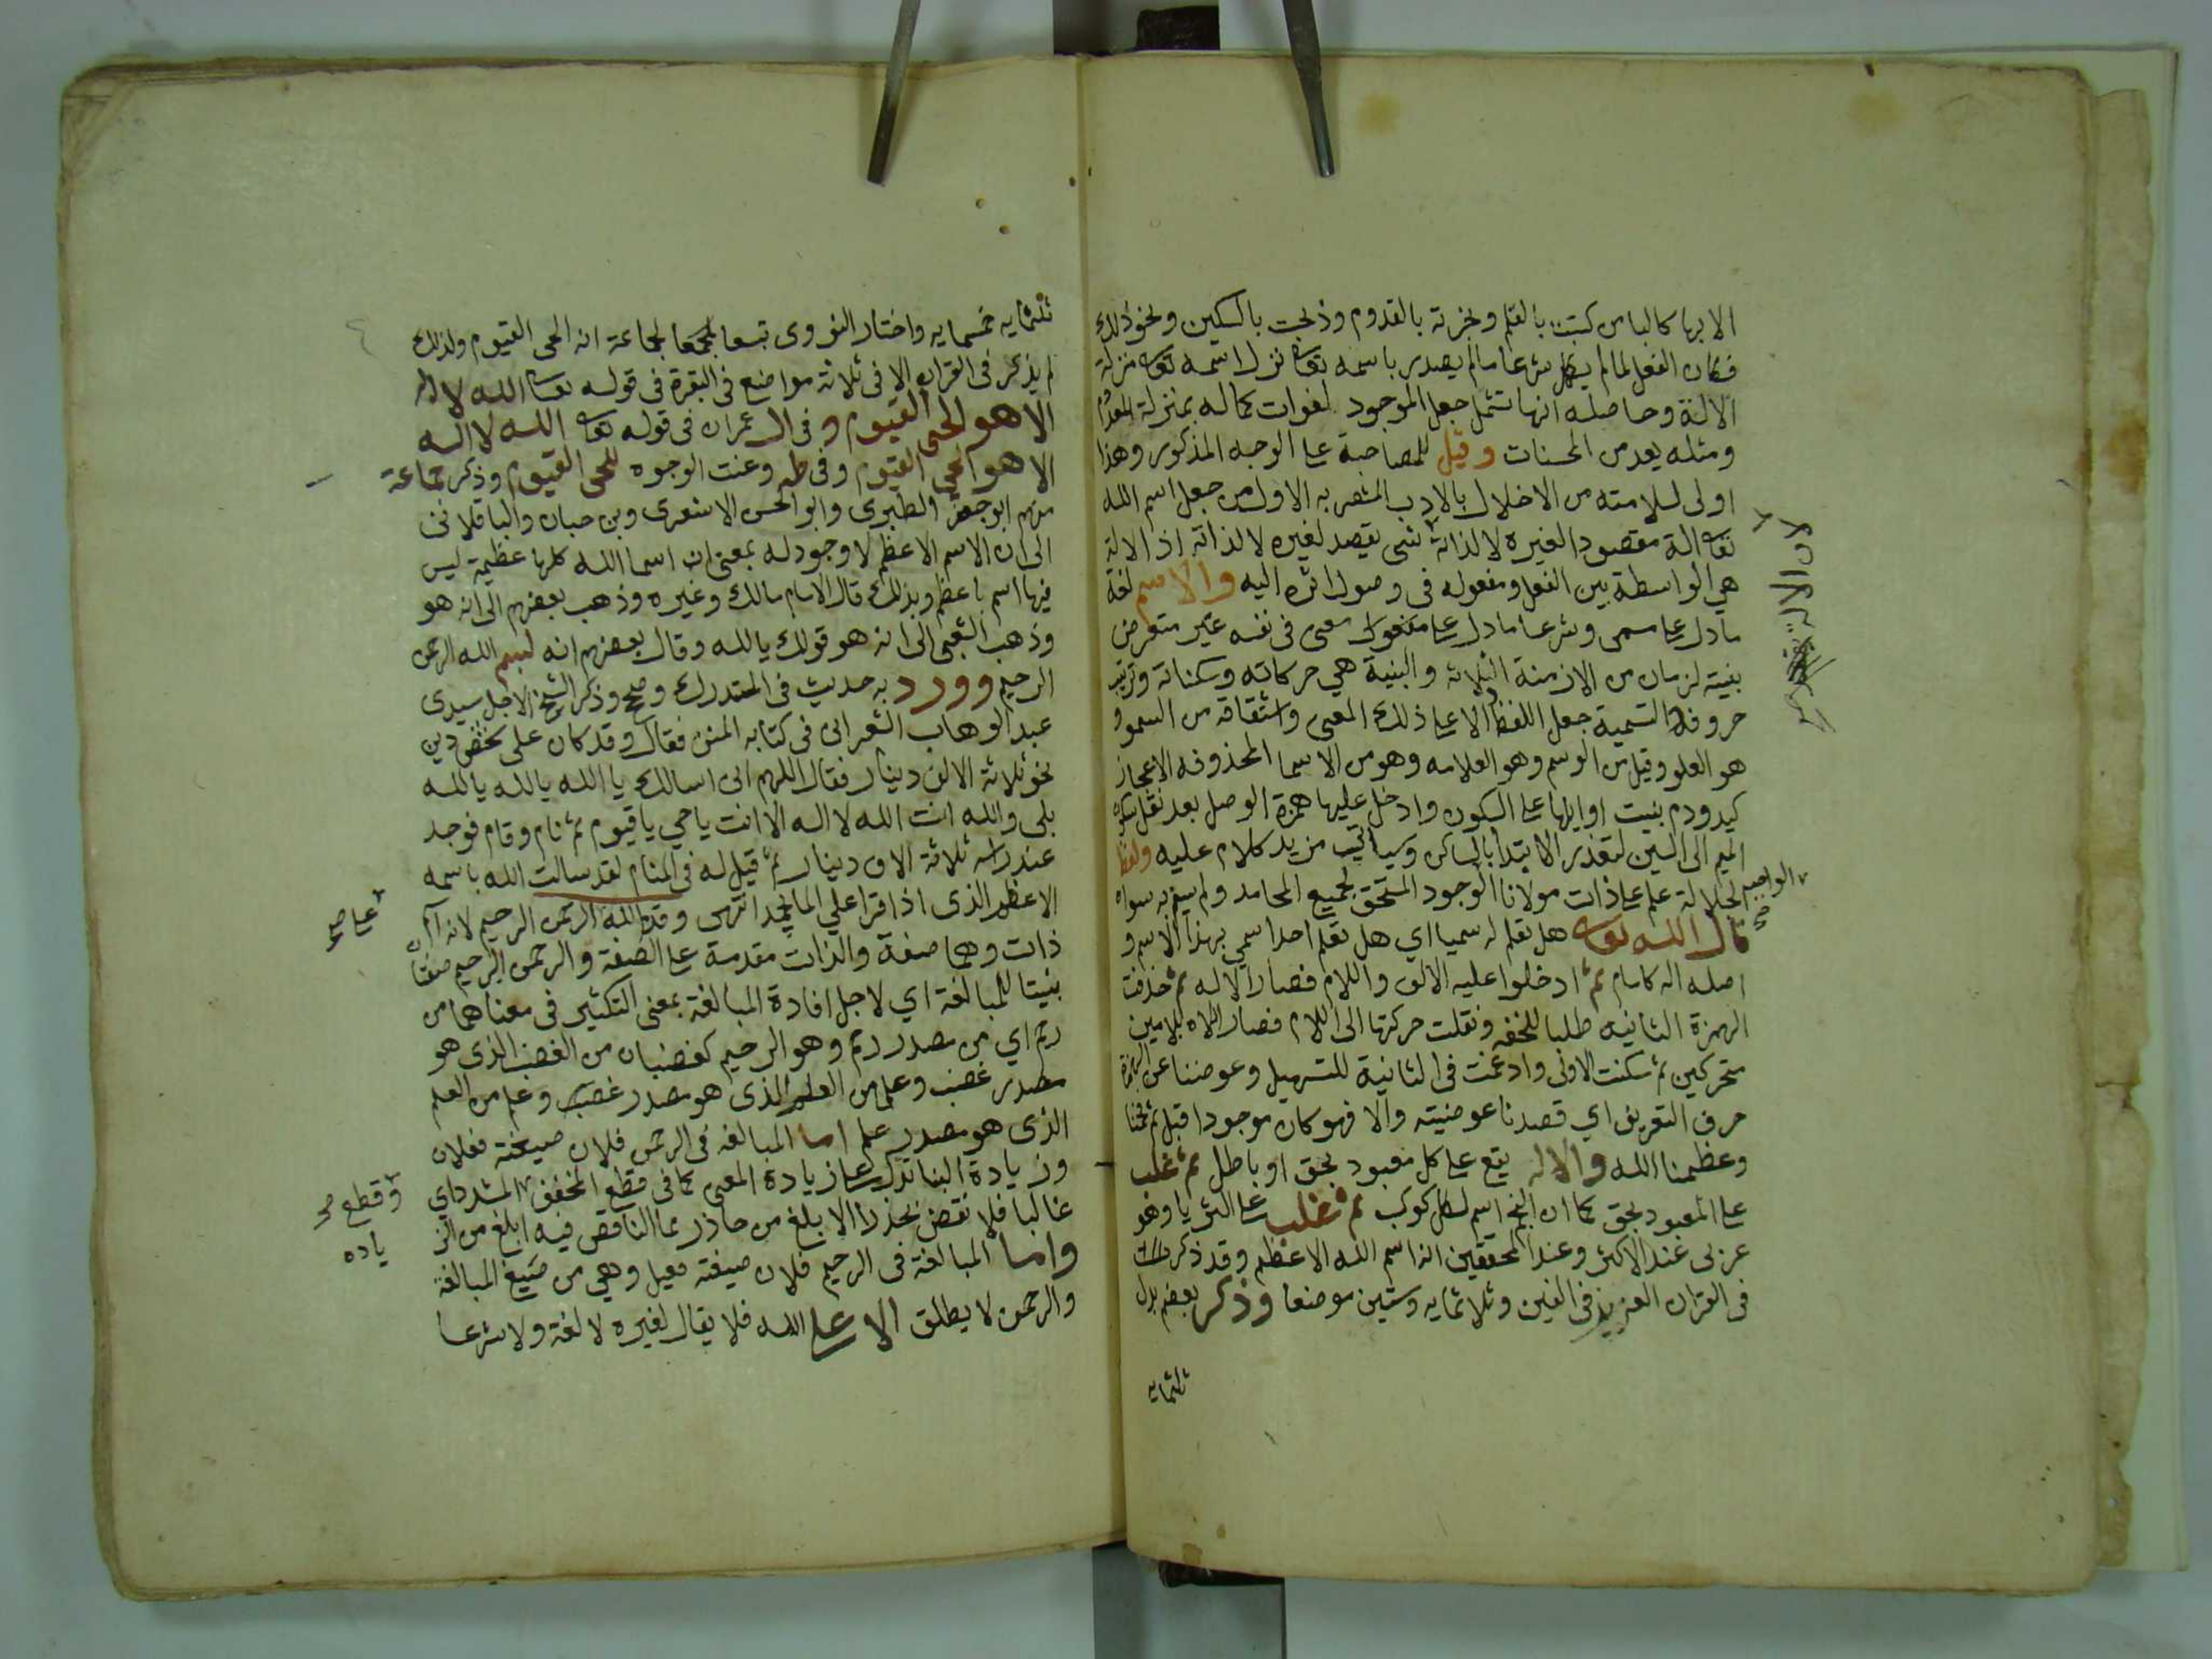 الا بها كالباس كتبت بالقلم ونجزته بالقدوم وذبحت بالسكين ونحو ذلك
فكان الفعل لما لم يكمل شرعا ما لم يصدر باسمه تعا نزل اسمه تعا منزلة
الالة وحاصله انها تشمل جعل الموجود لفوات كماله بمنزلة المعدوم
ومثله يعد من المحسنات وقيل للمصاحبة على الوجه المذكور وهذا
اولى لسلامته من الاخلال بالادب المشعر به الاول من جعل اسم الله
تعا الة مقصودا لغيره لا لذاته شى يقصد لغيره لا لذاته اذ الالة
هي الواسطة بين الفعل ومفعوله فى وصول اثره اليه والاسم لغة
ما دل على مسمى وشرعا ما دل على معنى فى نفسه غير متعرض
بنيته لزمان من الازمنة الثلاثه والبنية هي حركاته وسكناته وترتيب
حروفه والتسمية جعل اللفظ دالا على ذلك المعنى واشتقاقه من السمو و
هو العلو وقيل من الوسم وهو العلامه وهو من الاسما المحذوفه الاعجاز
كيد ودم بنيت اوايلها على السكون وادخل عليها همزة الوصل بعد نقل سكون
الميم الى السين لتعذر الابتدا بالساكن وسياتي مزيد كلام عليه ولفظ
الجلالة علم على ذات مولانا الوجود المستحق لجميع المحامد ولم يسم به سواه
قال الله تعا هل تعلم له سميا اي هل تعلم احدا سمي بهذا الاسم و
اصله اله كامام ثم ادخلوا عليه الالف واللام فصار الاله ثم حذفت
الهمزة الثانيه طلبا للخفه ونقلت حركتها الى اللام فصار اللاه بلامين
متحركين ثم سكنت الاولى وادغمت فى الثانية للتسهيل وعوضنا عن الهمزة
حرف التعريف اي قصدنا عوضيته والا فهو كان موجودا قبل ثم فخمنا
وعظمنا الله والاله يقع على كل معبود بحق او باطل ثم غلب
على المعبود بحق كما ان النجم اسم لكل كوكب ثم غلب على الثريا وهو
عربى عند الاكثر وعند المحققين انه اسم الله الاعظم وقد ذكر
فى القران العزيز فى الفين وثلاثمايه وستين موضعا وذكر بعضهم بدل
ثلثمايه
لان الالة
الواجب صح
ثلثمايه خمسمايه واختار النووى تبعا لجماعة انه الحى القيوم ولذلك
لم يذكر فى القران الا فى ثلاثة مواضع فى البقرة فى قوله تعا الله لا اله
الا هو الحى القيوم و فى ال عمران فى قوله تعا الله لا اله
الا هو الحى القيوم وفى طه وعنت الوجوه للحى القيوم وذكر جماعة
منهم ابو جعفر الطبرى وابو الحسن الاشعرى وبن حبان والباقلانى
الى ان الاسم الاعظم لا وجود له بمعنى ان اسما الله كلها عظيمة ليس
فيها اسم باعظم وبذلك قال الامام مالك وغيره وذهب بعضهم الى انه هو
وذهب الشعبى الى انه هو قولك يا لله وقال بعضهم انه بسم الله الرحمن
الرحيم وورد به حديث فى المستدرك وصح وذكر الشيخ الاجل سيدى
عبد الوهاب الشعرانى فى كتابه المنن فقال وقد كان على شخص دين
نحو ثلاثة الاف دينار فقال اللهم انى اسالك يا الله يا لله يا لله
بلى والله انت الله لا اله الا انت يا حي يا قيوم ثم نام وقام فوجد
عند راسه ثلاثة الاف دينار ثم قيل له فى المنام لقد سالت الله باسمه
الاعظم الذى اذا قرا على الما لجمد انتهى وقدم الله الرحمن الرحيم لانه اسم
ذات وهما صفة والذات مقدمة على الصفة والرحمن الرحيم صفتان
بنيتا للمبالغة اي لاجل افادة المبالغة بمعنى التكثير فى معناهما من
رحم اي من مصدر رحم وهو الرحيم كغضبان من الغضب الذى هو
مصدر غضب وعلم من العلم الذى هو مصدر غضب وعليم من العلم
الذى هو مصدر علم اما المبالغه فى الرحمن فلان صيغته فعلان
وزيادة البنا تدل على زيادة المعنى كما فى قطع المخفف المشدد اي
غالبا فلا نقض بحذر الابلغ من حاذر مما الناقص فيه ابلغ من الز
واما المبالغة فى الرحيم فلان صيغته فعيل وهي من صيغ المبالغة
والرحمن لا يطلق الا على الله فلا يقال لغيره لا لغة ولا شرعا
على صح
وقطع صح
ياده